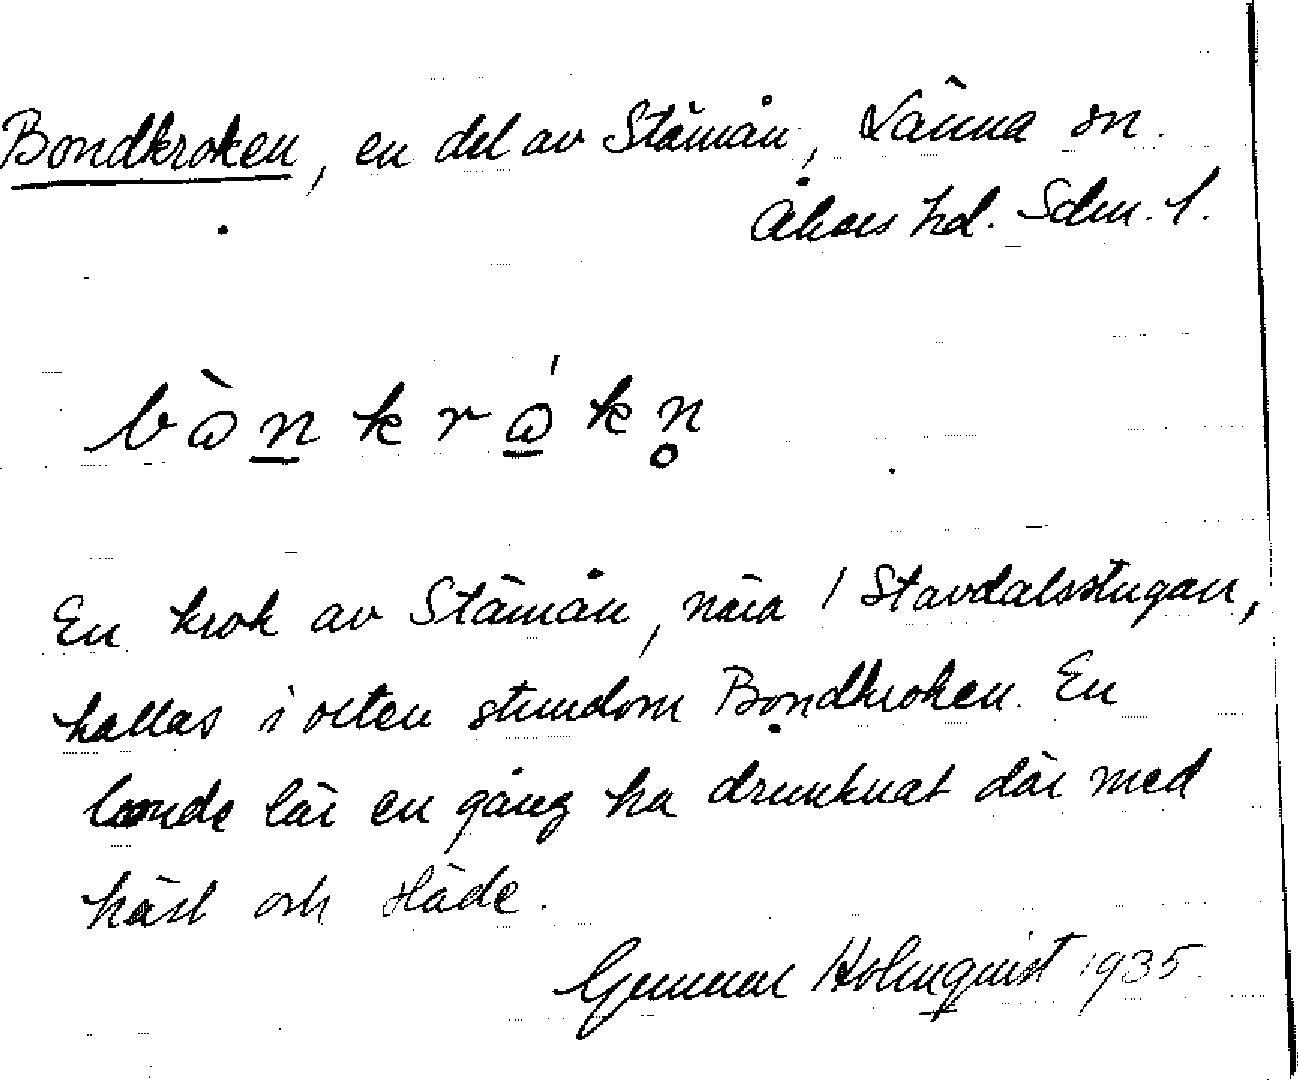 Bondkroken, en del av Stämån, Länna sn.
Åkers hd. Sdm. l.
bὼn̲krώ̲kn̥
En krok av Stämån, nära / Stavdalsstugan,
kallas i orten stundom Bondkroken. En
bonde lär en gång ha drunknat där med
häst och släde.
Gunnar Holmquist 1935.